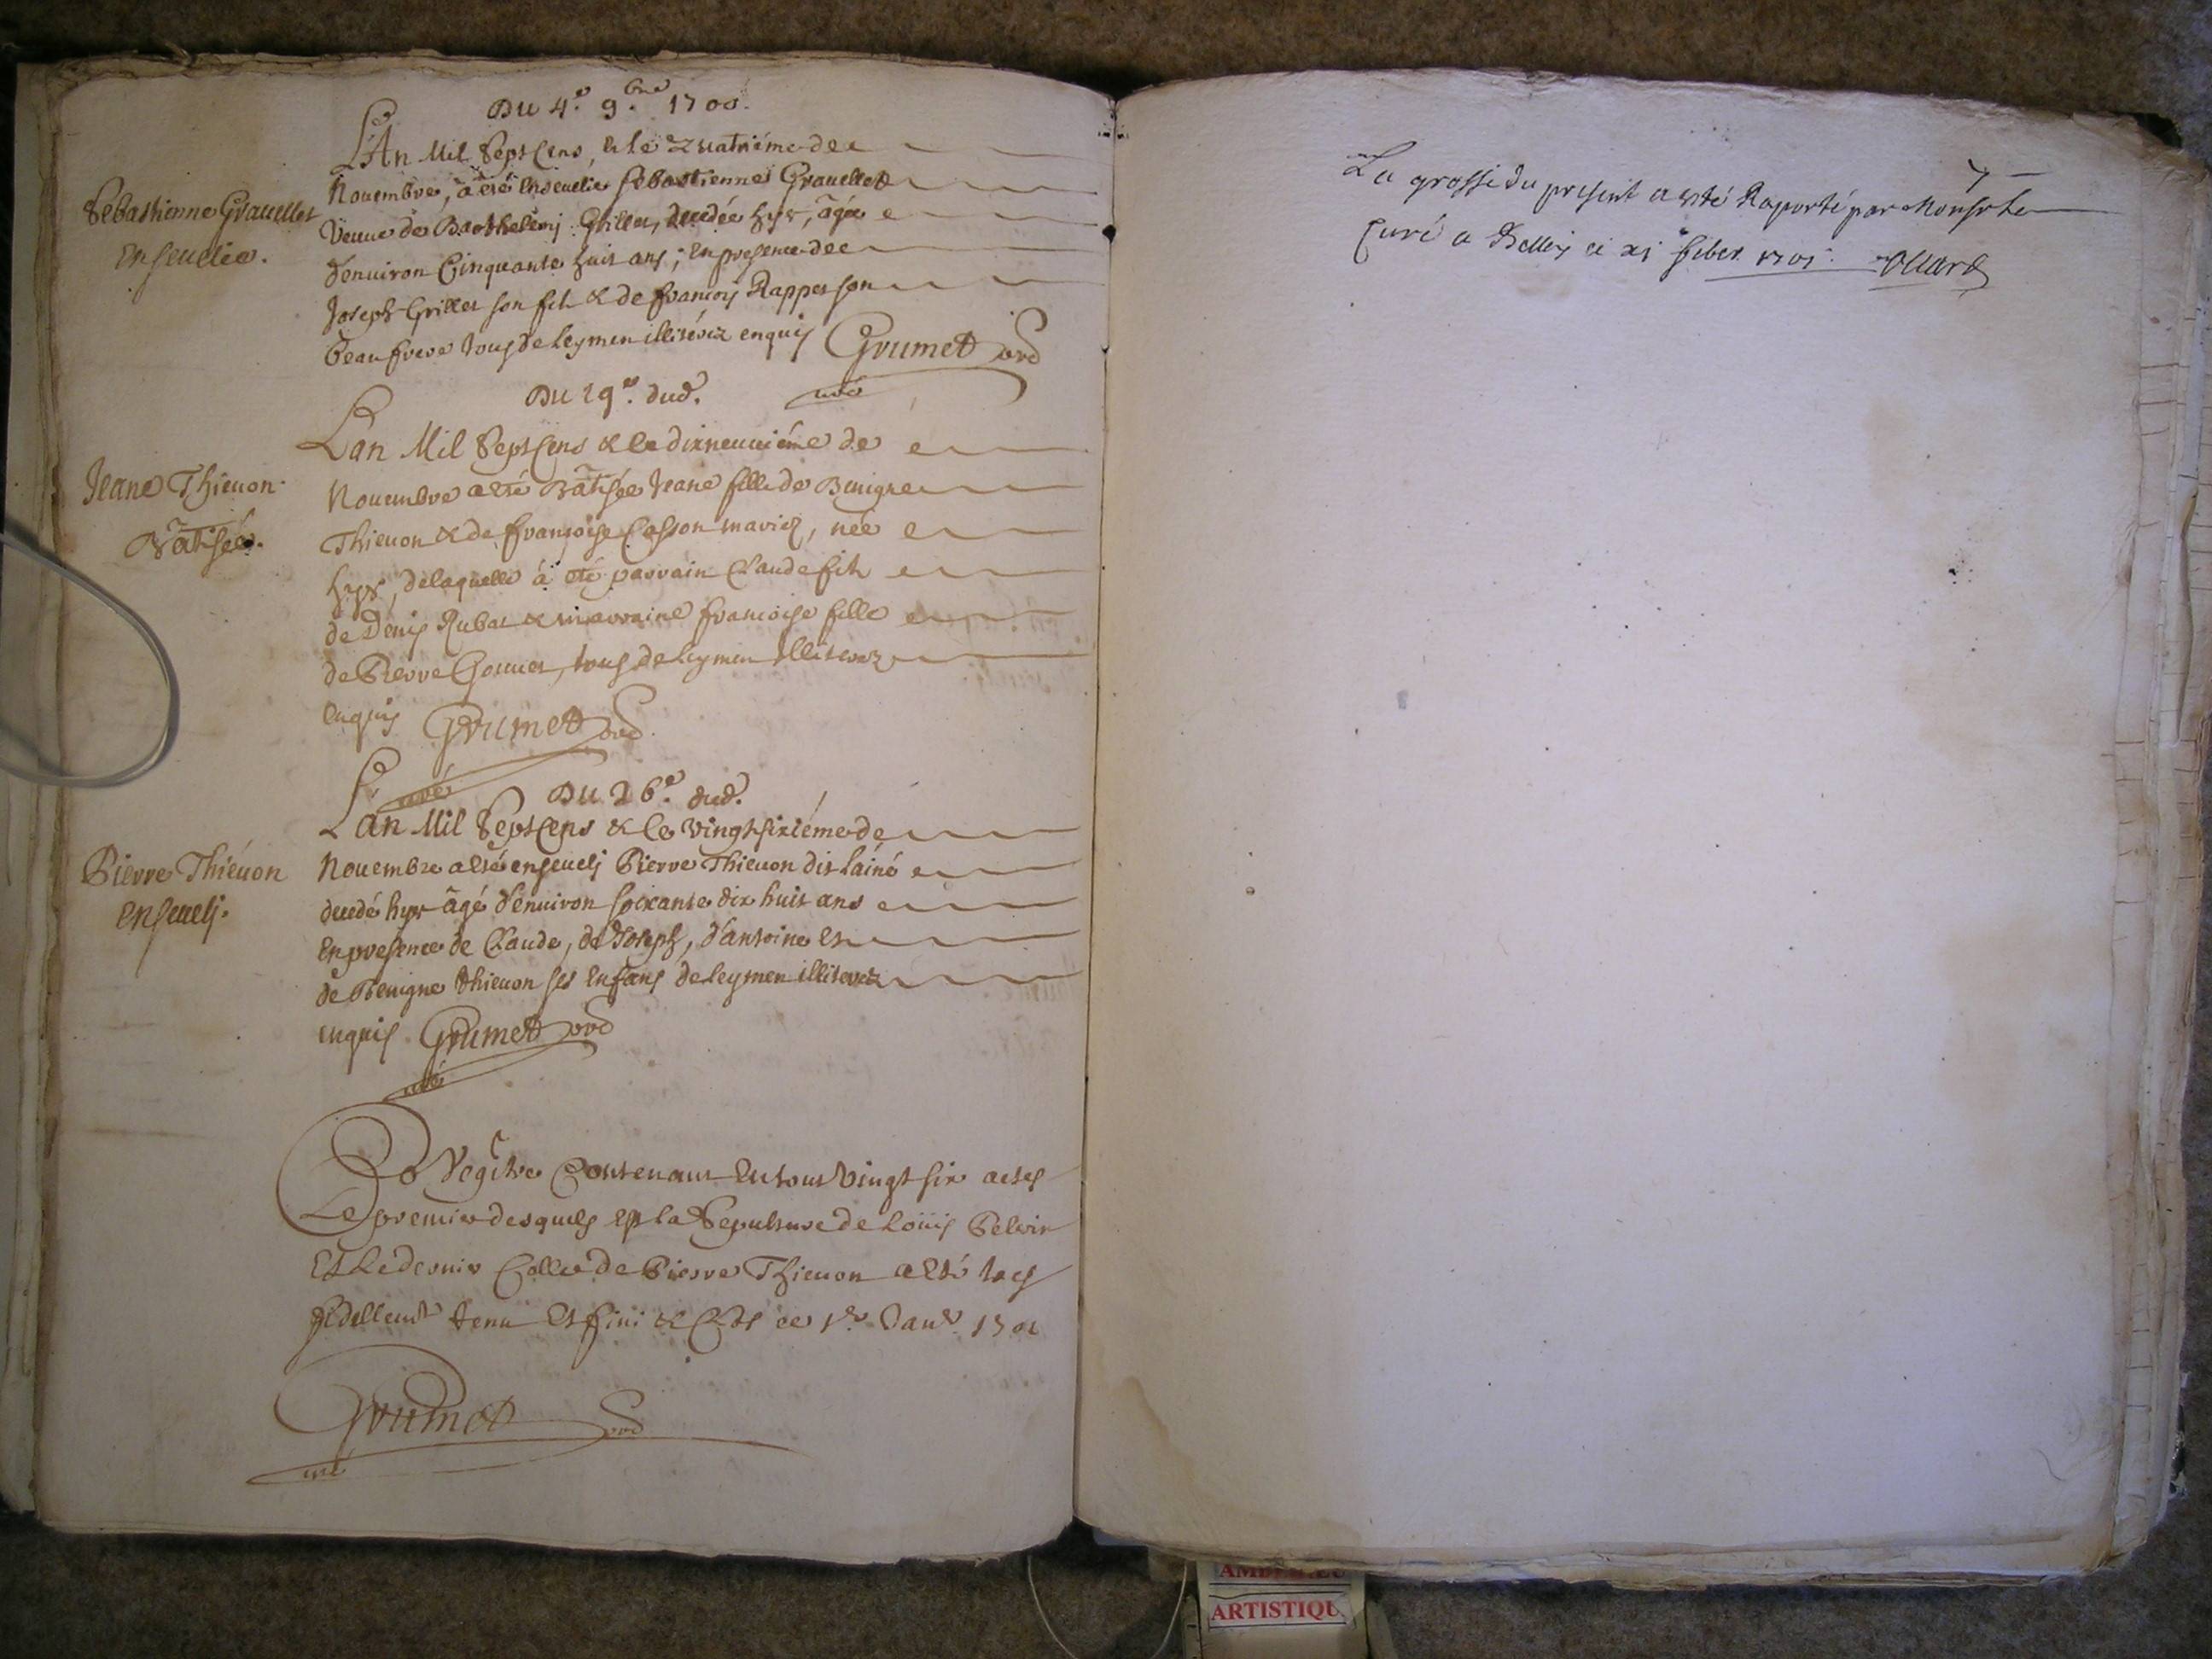 Du 4.e 9.bre 1700.
L'An Mil Sept Cens, & le Quatriéme de
Nouembre, à eté Enseuelie Sebastienne Grauellet
Veuue de Barthelemj Grillet, decedée hyer, âgée
d'enuiron Cinquante huit ans; En presence de
Joseph Grillet son fils & de françois Rappet son
beau frere tous de Leymen illiterez enquis Grumet
curé
Sebastienne Grauellet
Enseuelie.
Du 19.e dud.
Lan Mil Sept Cens & le dixneuuiéme de
Nouembre a eté Bâtisée Jeane fille de Benigne
Thieuon & de françoise Casson mariez, née
hyer, de laquelle à eté parrain Claude fils
de Denis Rubat & marraine françoise fille
de Pierre tous de Leymen Illiterez
Enquis Grumet
curé
Jeane Thieuon
Bâtisée.
Du 26.e dud.
Lan Mil Sept Cens & le vingt sixiéme de
Nouembre a eté enseuelj Pierre Thieuon dit lainé
decedé hyer âgé d'enuiron soixante dix huit ans
En presence de Claude, de Joseph, d'antoine et
de Benigne thieuon ses Enfans de Leymen illiterez
enquis Grumet
curé
Pierre Thiéuon
Enseuelj.
Ce Regitre Contenant En tout Vingt six actes
Le premier desquels est la Sepulture de Loüis
Et Le dernier Celle de Pierre Thieuon a eté
fidellemt tenu Et fini & Clos ce 1.er Janer. 1701
Grumet
curé
La grosse du present a esté Raporté par Monsr le
Curé a Belley ce xi feber 1701.
AMBERIEU
ARTISTIQU